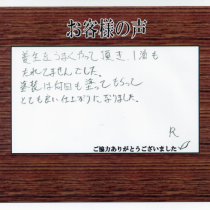 お客様の声
養生をうまくやって頂き、1滴も
たれてませんでした。
塗装は何回も塗ってもらって
とても良い仕上がりになりました。
R
ご協力ありがとうございました